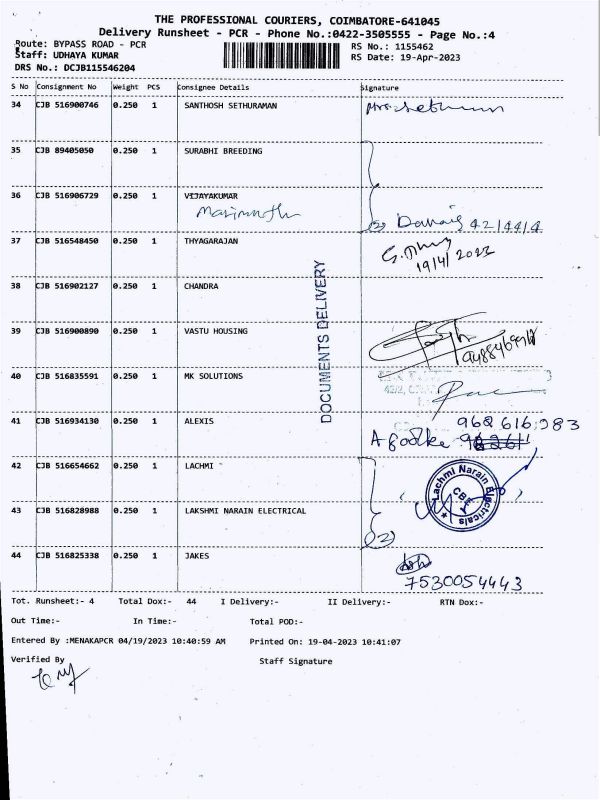 THE PROFESSIONAL COURIERS, COIMBATORE-641045
Delivery Runsheet - PCR - Phone No.:0422-3505555 - Page No.:4
Route: BYPASS ROAD - PCR
RS No.: 1155462
Staff: UDHAYA KUMAR
RS Date: 19-Apr-2023
DRS No.: DCJB115546204
S No Consignment No Weight PCS Consignee Details Signature
34 CJB 516900746 0.250 1 SANTHOSH SETHURAMAN
35 CJB 89405050 0.250 1 SURABHI BREEDING
36 CJB 516906729 0.250 1 VIJAYAKUMAR
(2)
37 CJB 516548450 0.250 1 THYAGARAJAN
19/4/2023
38 CJB 516902127 0.250 1 CHANDRA
DOCUMENTS DELIVERY
39 CJB 516900890 0.250 1 VASTU HOUSING
40 CJB 516835591 0.250 1 MK SOLUTIONS
41 CJB 516934130 0.250 1 ALEXIS
42 CJB 516654662 0.250 1 LACHMI
Lachmi Narain Electricals
CBE
43 CJB 516828988 0.250 1 LAKSHMI NARAIN ELECTRICAL
(2)
44 CJB 516825338 0.250 1 JAKES
7530054443
Tot. Runsheet:- 4 Total Dox:- 44 I Delivery:- II Delivery:- RTN Dox:-
Out Time:- In Time:- Total POD:-
Entered By :MENAKAPCR 04/19/2023 10:40:59 AM Printed On: 19-04-2023 10:41:07
Verified By Staff Signature